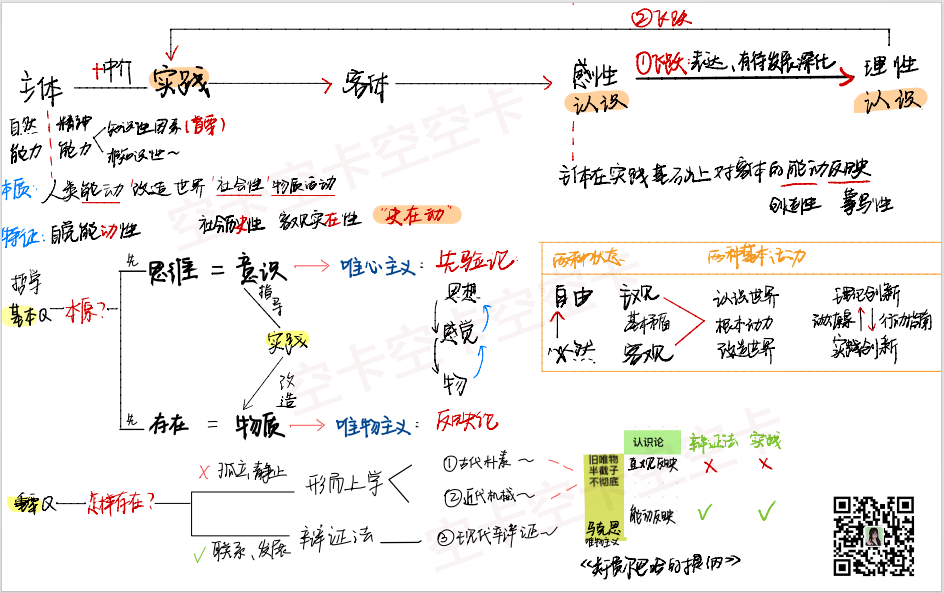 ②飞跃
主体 +中介 实践 客体 感性认识 ①飞跃:表达、有待发展深化 理性认识
自然能力 精神能力 知识性因素(首要)
非知识性~
主体在实践基础上对客体的能动反映
创造性 摹写性
本质: 人类能动 改造世界 社会性 物质活动
特征: 自觉能动性 社会历史性 客观实在性 "史在动"
哲学基本Q 本原?
先 思维 = 意识 唯心主义: 先验论
指导
实践
改造
先 存在 = 物质 唯物主义: 反映论
思想
感觉
物
两种状态 两种基本活动
自由 主观 认识世界 理论创新
基本矛盾 根本动力 行动指南
必然 客观 改造世界 实践创新
重要Q 怎样存在?
× 孤立、静止 形而上学
√ 联系、发展 辩证法
①古代朴素~
②近代机械~
③现代辩证~
认识论 辩证法 实践
旧唯物 半截子 不彻底 直观反映 × ×
马克思唯物主义 能动反映 √ √
《关于费尔巴哈的提纲》
空卡空卡空卡